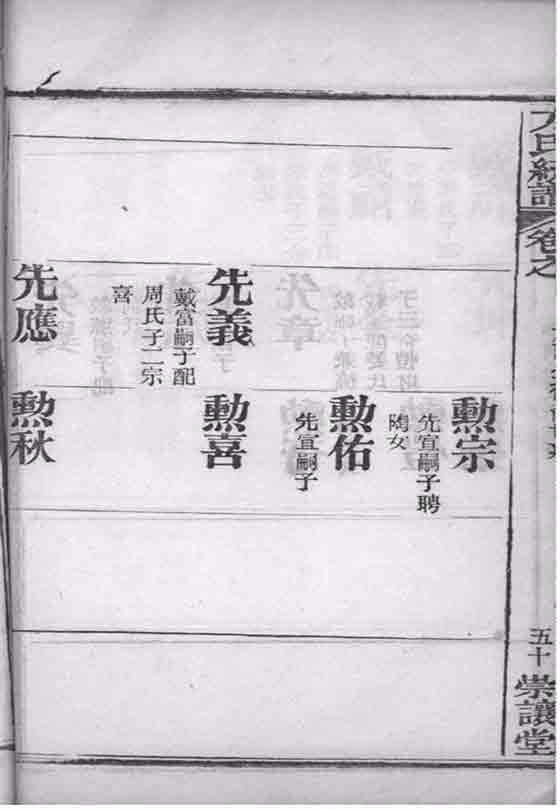 氏統譜
卷之
五十
崇讓堂
勲宗
先宜嗣子聘
陶女
勲佑
先宜嗣子
先義
戴富嗣子配
周氏子二宗
喜
勲喜
先應
勲秋